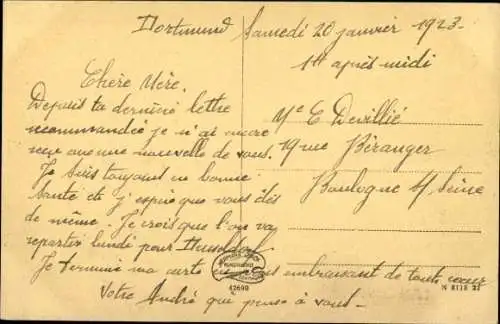 Dortmund Samedi 20 janvier 1923
1 après midi
Chère Mère.
Depuis ta dernière lettre
recommandée je n'ai encore
reçu aucune nouvelle de vous.
Je suis toujours en bonne
santé et j'espère que vous êtes
de même. Je crois que l'on va
repartir lundi pour Dusseldorf
Je termine ma carte en vous embrassant de tout cœur
Votre André qui pense à vous-
Me E Devillié
19 rue Béranger
Boulogne s/ Seine
42690
N 8118 23